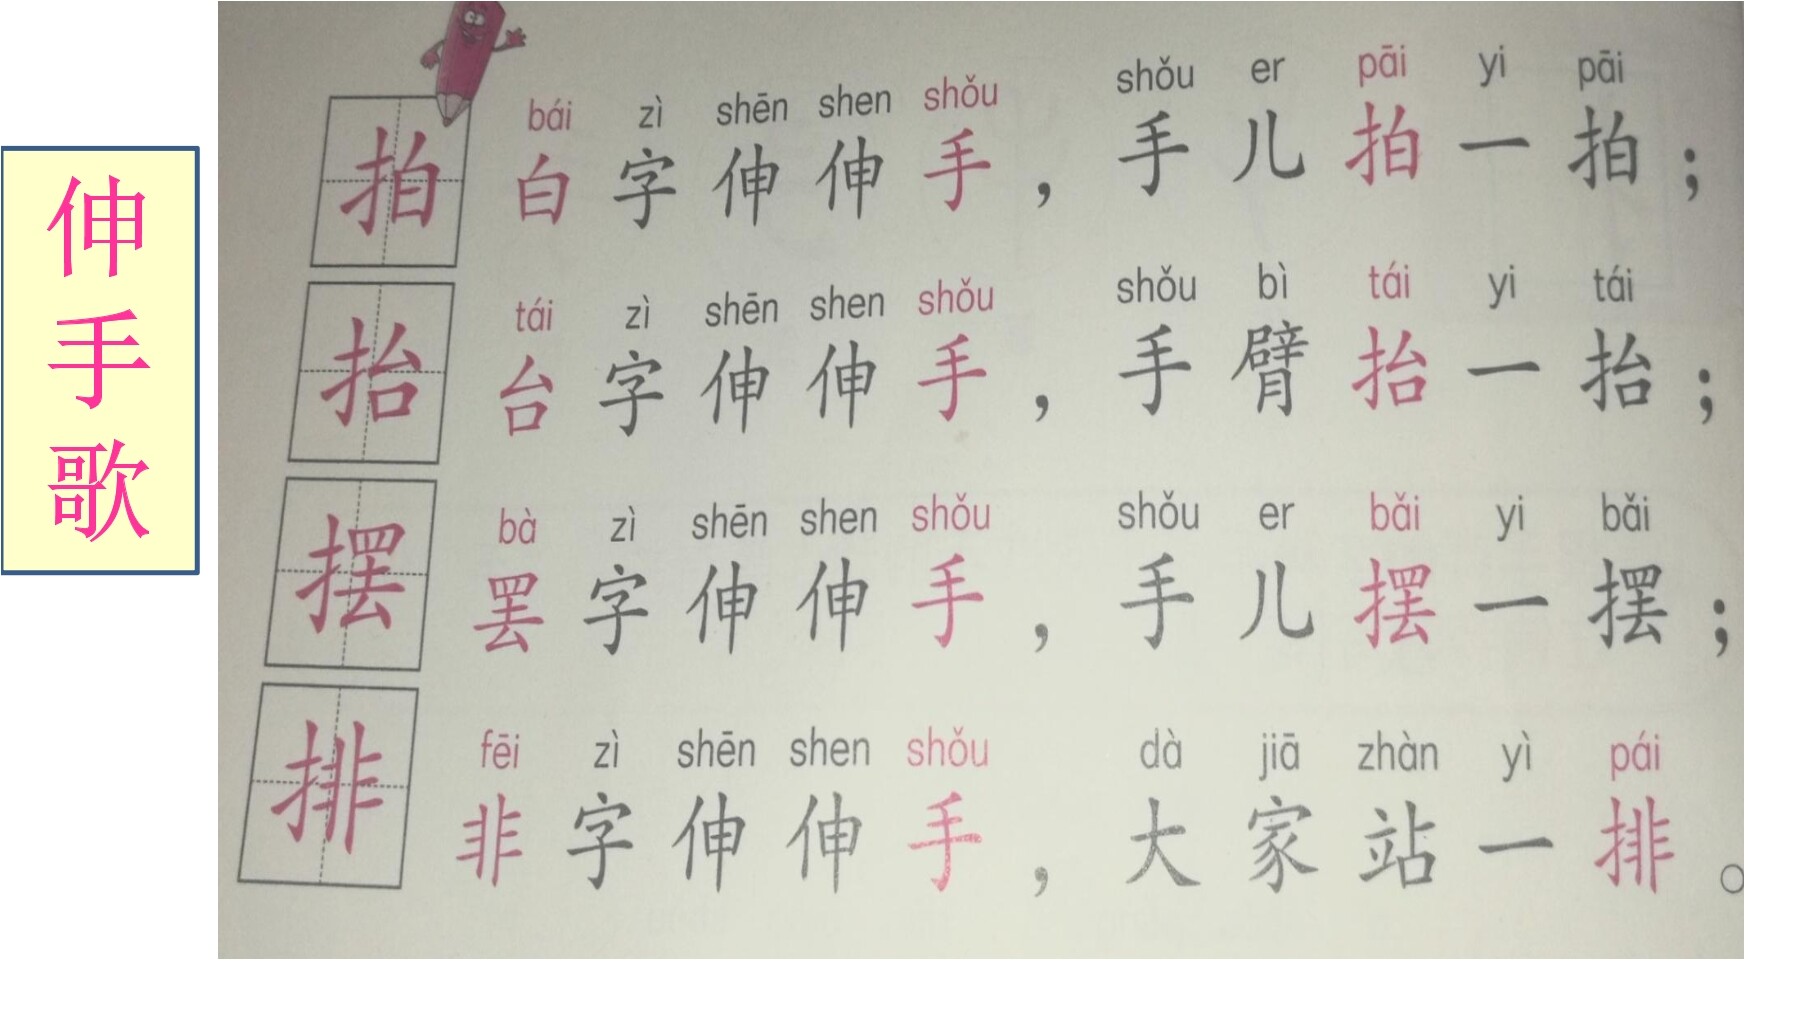 伸手歌
bái zì shēn shen shǒu shǒu er pāi yi pāi
拍 白字伸伸手，手儿拍一拍；
tái zì shēn shen shǒu shǒu bì tái yi tái
抬 台字伸伸手，手臂抬一抬；
bà zì shēn shen shǒu shǒu er bǎi yi bǎi
摆 罢字伸伸手，手儿摆一摆；
fēi zì shēn shen shǒu dà jiā zhàn yì pái
排 非字伸伸手，大家站一排。